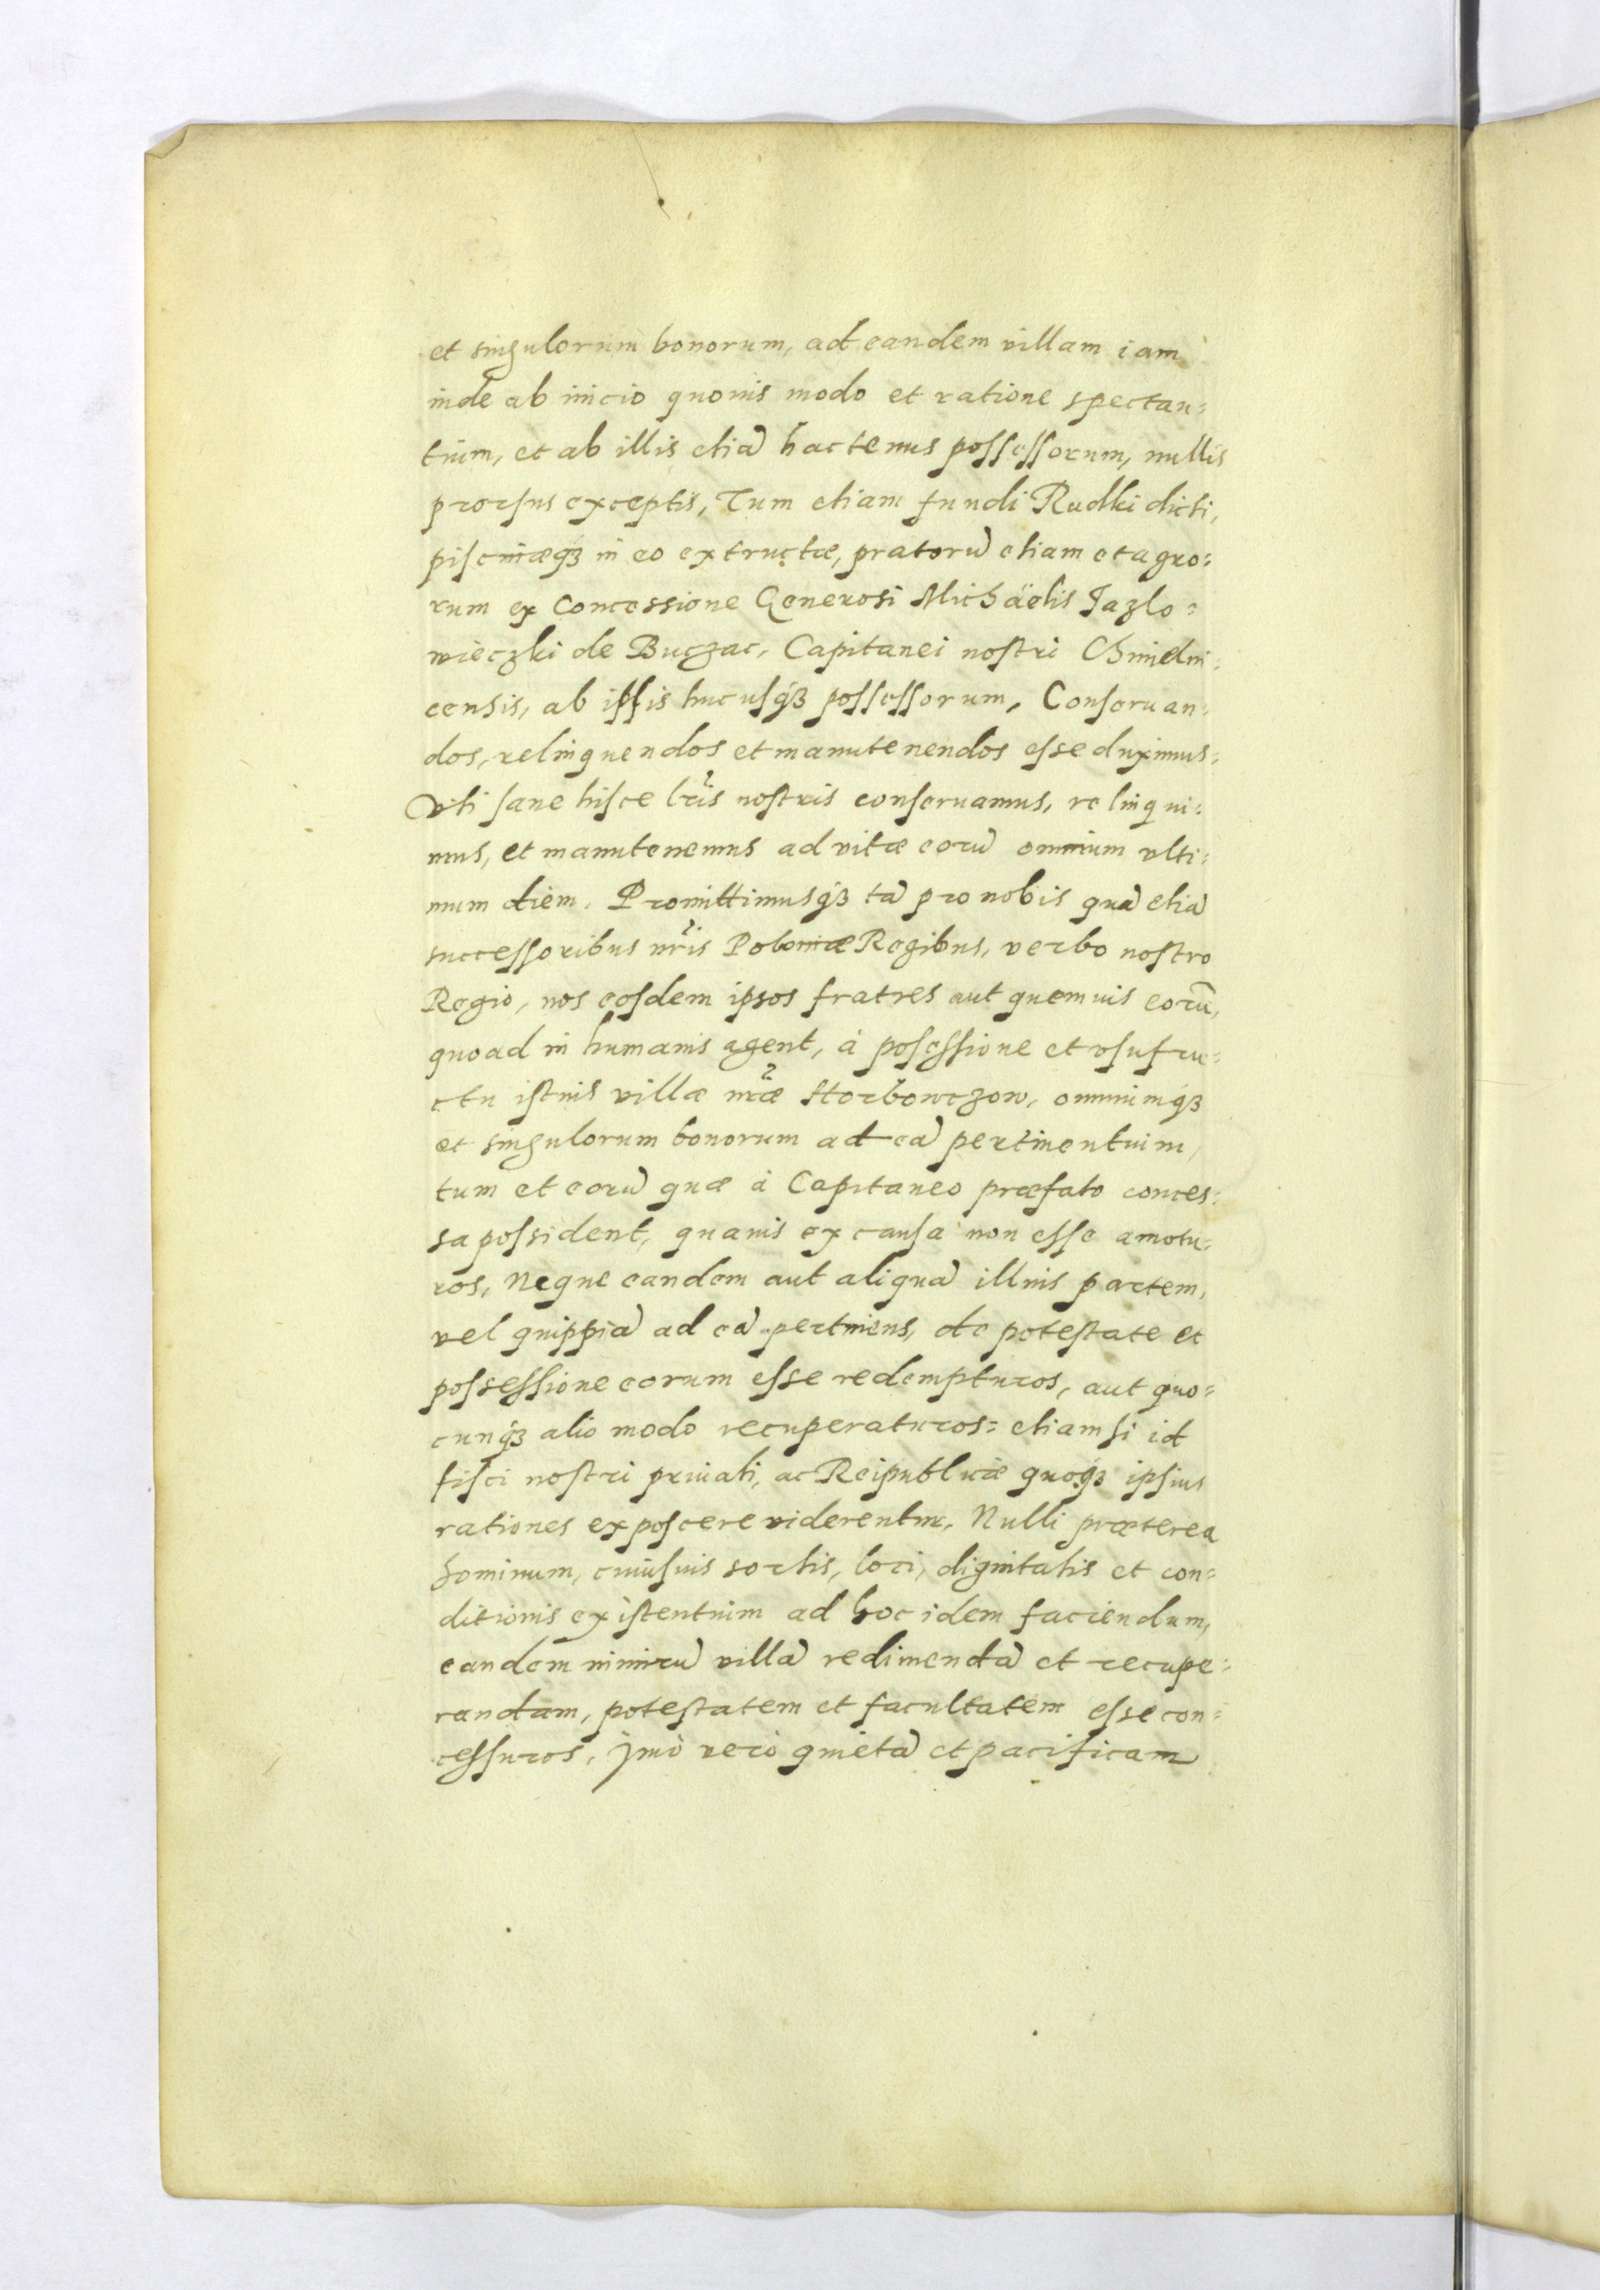 et singulorum bonorum, ad eandem villam iam
inde ab inicio quouis modo et ratione spectan=
tium, et ab illis etiã hactenus possessorum, nullis
prorsus exceptis, Tum etiam fundi Rudki dicti,
piscinaeq3 in eo extructae, pratorũ etiam et agro=
rum ex Concessione Generosi Michäelis Jazlo=
wieczki de Buczac, Capitanei nostri Chmielni=
censis, ab ipsis hucusq3 possessorum, Conseruan=
dos, relinquendos et manutenendos esse duximus=
Vti sane hisce lr̃is nostris conseruamus, relinqui=
mus, et manutenemus ad vitae eorũ omnium vlti=
mum diem. Promittimusq3 tã pro nobis quã etiã
successoribus nr̃is Poloniae Regibus, verbo nostro
Regio, nos eosdem ipsos fratres aut quemuis eorũ,
quoad in humanis agent, à possessione et vsufru=
ctu istius villae nr̃ae Horbowczow, omniumq3
et singulorum bonorum ad eã pertinentium,
tum et eorũ quae à Capitaneo praefato conces=
sa possident, quauis ex causa non esse amotu=
ros, Neque eandem aut aliquã illius partem,
vel quippiã ad eã pertinens, de potestate et
possessione eorum esse redempturos, aut quo=
cunq3 alio modo recuperaturos= etiamsi id
fisci nostri priuati, ac Reipublicae quoq3 ipsius
rationes exposcere viderentur. Nulli praeterea
hominum, cuiusuis sortis, loci, dignitatis et con=
ditionis existentium ad hoc idem faciendum,
eandem nimirũ villã redimendã et recupe=
randam, potestatem et facultatem esse con=
cessuros, Jmò verò quietã et pacificam